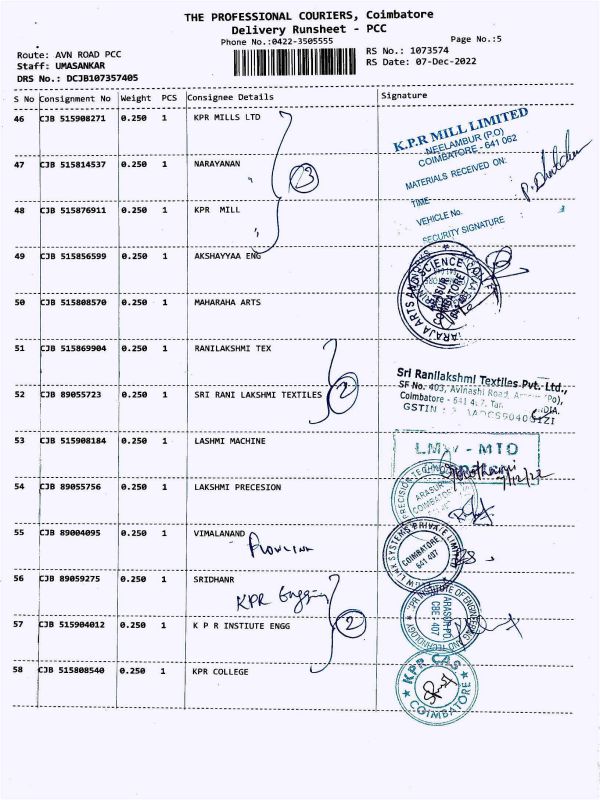 THE PROFESSIONAL COURIERS, Coimbatore
Delivery Runsheet - PCC
Phone No.:0422-3505555
Page No.:5
Route: AVN ROAD PCC
RS No.: 1073574
Staff: UMASANKAR
RS Date: 07-Dec-2022
DRS No.: DCJB107357405
S No Consignment No Weight PCS Consignee Details Signature
46 CJB 515908271 0.250 1 KPR MILLS LTD
K.P.R MILL LIMITED
NEELAMBUR (P.O)
COIMBATORE - 641 062
MATERIALS RECEIVED ON:
TIME
VEHICLE No.
SECURITY SIGNATURE :
47 CJB 515814537 0.250 1 NARAYANAN
3
48 CJB 515876911 0.250 1 KPR MILL
49 CJB 515856599 0.250 1 AKSHAYYAA ENG
ARASUR
COIMBATORE
50 CJB 515808570 0.250 1 MAHARAHA ARTS
51 CJB 515869904 0.250 1 RANILAKSHMI TEX
Sri Ranilakshmi Textiles Pvt. Ltd.,
SF No. 403, Avinashi Road, (Po),
Coimbatore - 641
GSTIN :
52 CJB 89055723 0.250 1 SRI RANI LAKSHMI TEXTILES
2
53 CJB 515908184 0.250 1 LASHMI MACHINE
LMW - MTD
7/12/22
54 CJB 89055756 0.250 1 LAKSHMI PRECESION
PRECISION
ARASUR
COIMBATORE
55 CJB 89004095 0.250 1 VIMALANAND
SYSTEMS PRIVATE LIMITED
COIMBATORE
641 407
56 CJB 89059275 0.250 1 SRIDHANR
KPR
57 CJB 515904012 0.250 1 K P R INSTIUTE ENGG
2
INSTITUTE OF ENGINEERING AND TECHNOLOGY
ARASUR-PO
CBE - 407
58 CJB 515808540 0.250 1 KPR COLLEGE
KPR CAS
COIMBATORE